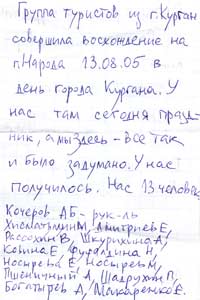 Группа туристов из г.Курган
совершила восхождение на
г.Народа 13.08.05 в
день города Кургана. У
нас там сегодня празд-
ник, а мы здесь - все так
и было задумано. У нас
получилось. Нас 13 человек
Кочеров АБ - рук-ль
М, Дмитриев Е,
Рассохин В, Шкурихина А,
Ковина Е, Н,
Носырева Е, Носырев М,
Пшеничный А, Шадрухин П,
Богатырев А, Макаренко Е.